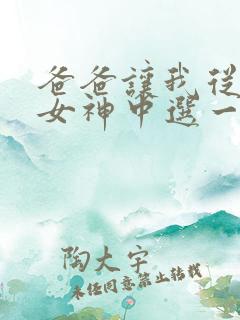 爸爸讓我從
女神中選一
陶大宇
未经同意禁止转载